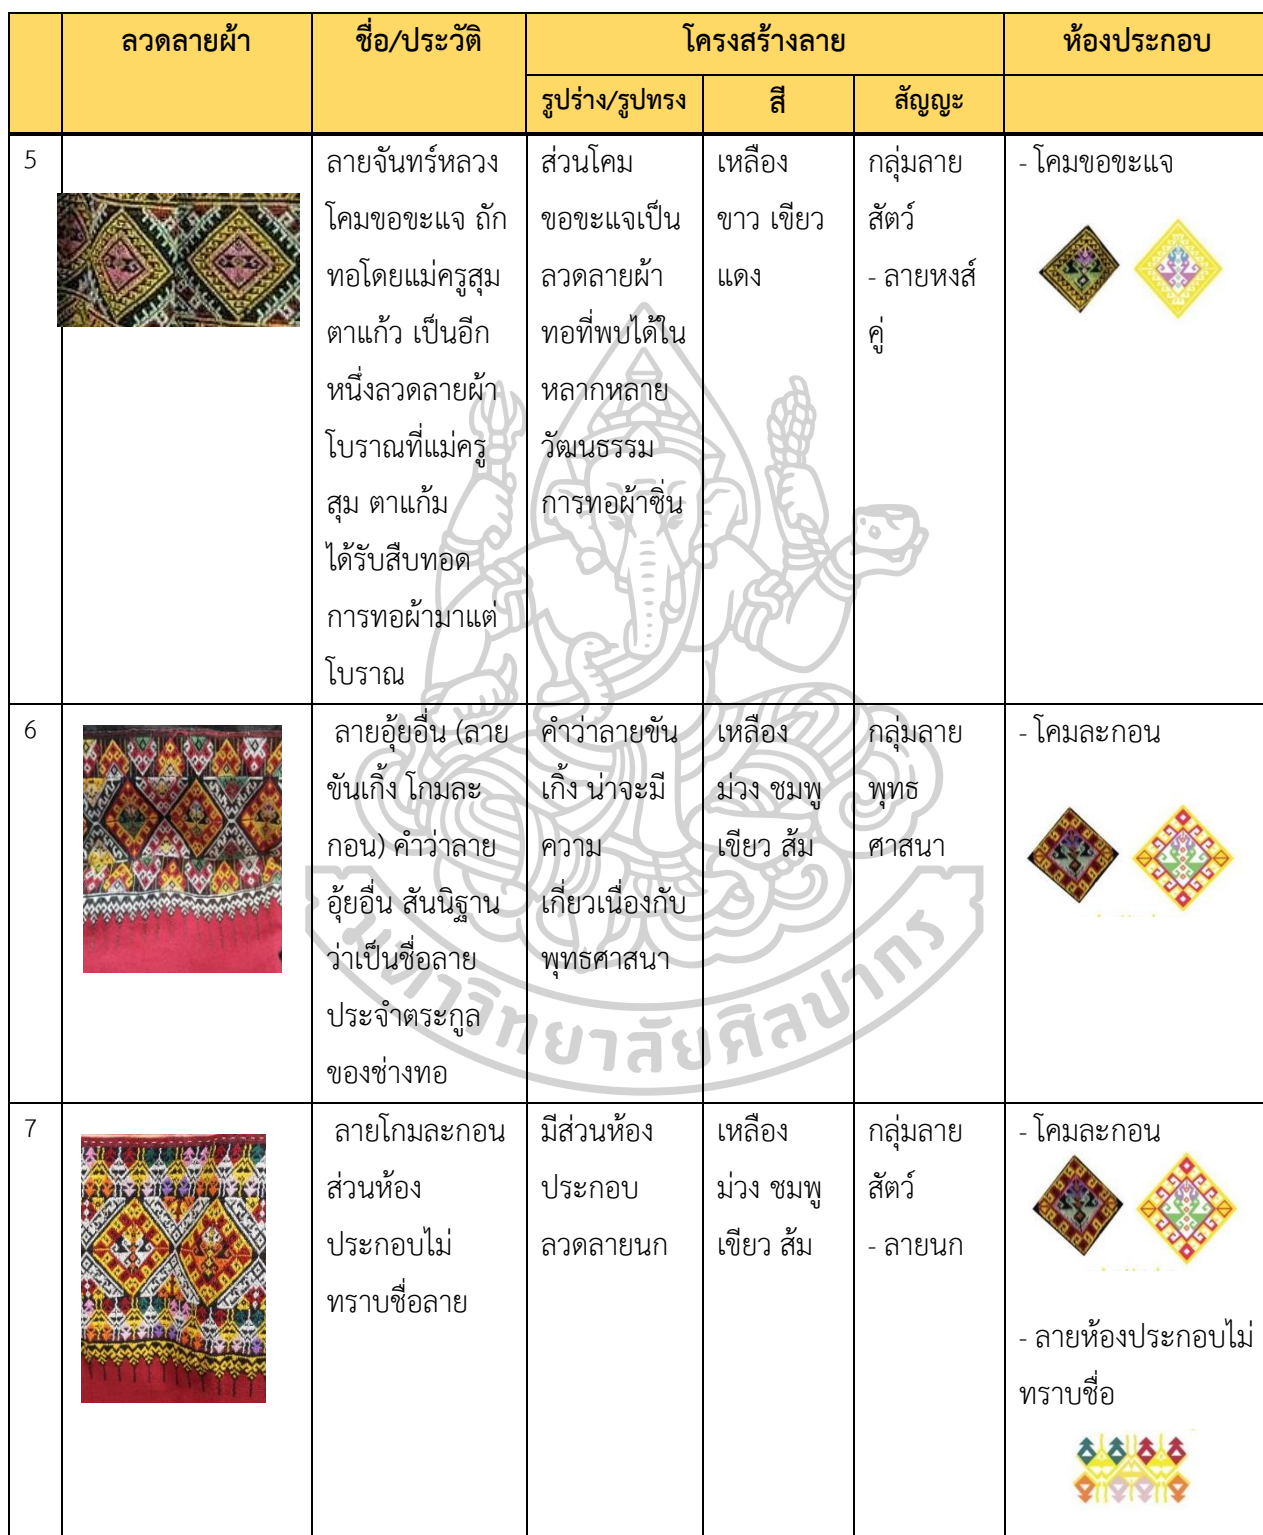 ลวดลายผ้า ชื่อ/ประวัติ โครงสร้างลาย ห้องประกอบ
รูปร่าง/รูปทรง สี สัญญะ
5
ลายจันทร์หลวง
โคมขอขะแจ ถัก
ทอโดยแม่ครูสุม
ตาแก้ว เป็นอีก
หนึ่งลวดลายผ้า
โบราณที่แม่ครู
สุม ตาแก้ม
ได้รับสืบทอด
การทอผ้ามาแต่
โบราณ
ส่วนโคม
ขอขะแจเป็น
ลวดลายผ้า
ทอที่พบได้ใน
หลากหลาย
วัฒนธรรม
การทอผ้าซิ่น
เหลือง
ขาว เขียว
แดง
กลุ่มลาย
สัตว์
- ลายหงส์
คู่
- โคมขอขะแจ
6
ลายอุ้ยอื่น (ลาย
ขันเกิ้ง โกมละ
กอน) คำว่าลาย
อุ้ยอื่น สันนิฐาน
ว่าเป็นชื่อลาย
ประจำตระกูล
ของช่างทอ
คำว่าลายขัน
เกิ้ง น่าจะมี
ความ
เกี่ยวเนื่องกับ
พุทธศาสนา
เหลือง
ม่วง ชมพู
เขียว ส้ม
กลุ่มลาย
พุทธ
ศาสนา
- โคมละกอน
7
ลายโกมละกอน
ส่วนห้อง
ประกอบไม่
ทราบชื่อลาย
มีส่วนห้อง
ประกอบ
ลวดลายนก
เหลือง
ม่วง ชมพู
เขียว ส้ม
กลุ่มลาย
สัตว์
- ลายนก
- โคมละกอน
- ลายห้องประกอบไม่
ทราบชื่อ
มหาวิทยาลัยศิลปากร